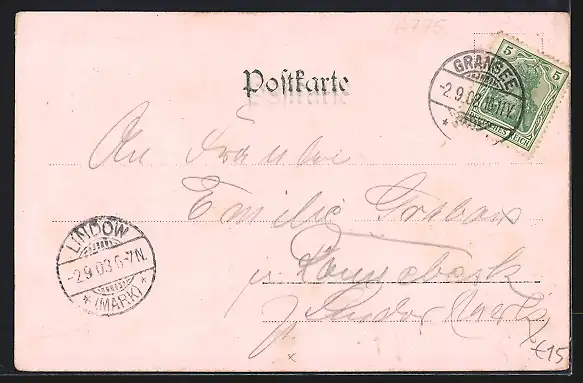 4775
Postkarte
GRANSEE
-2.9.03 10-11V.
5 5
REICH
An Fräulein
Emilie Grabow
LINDOW
-2.9.03 6-7N.
* (MARK) *
Lindow Mark
€15